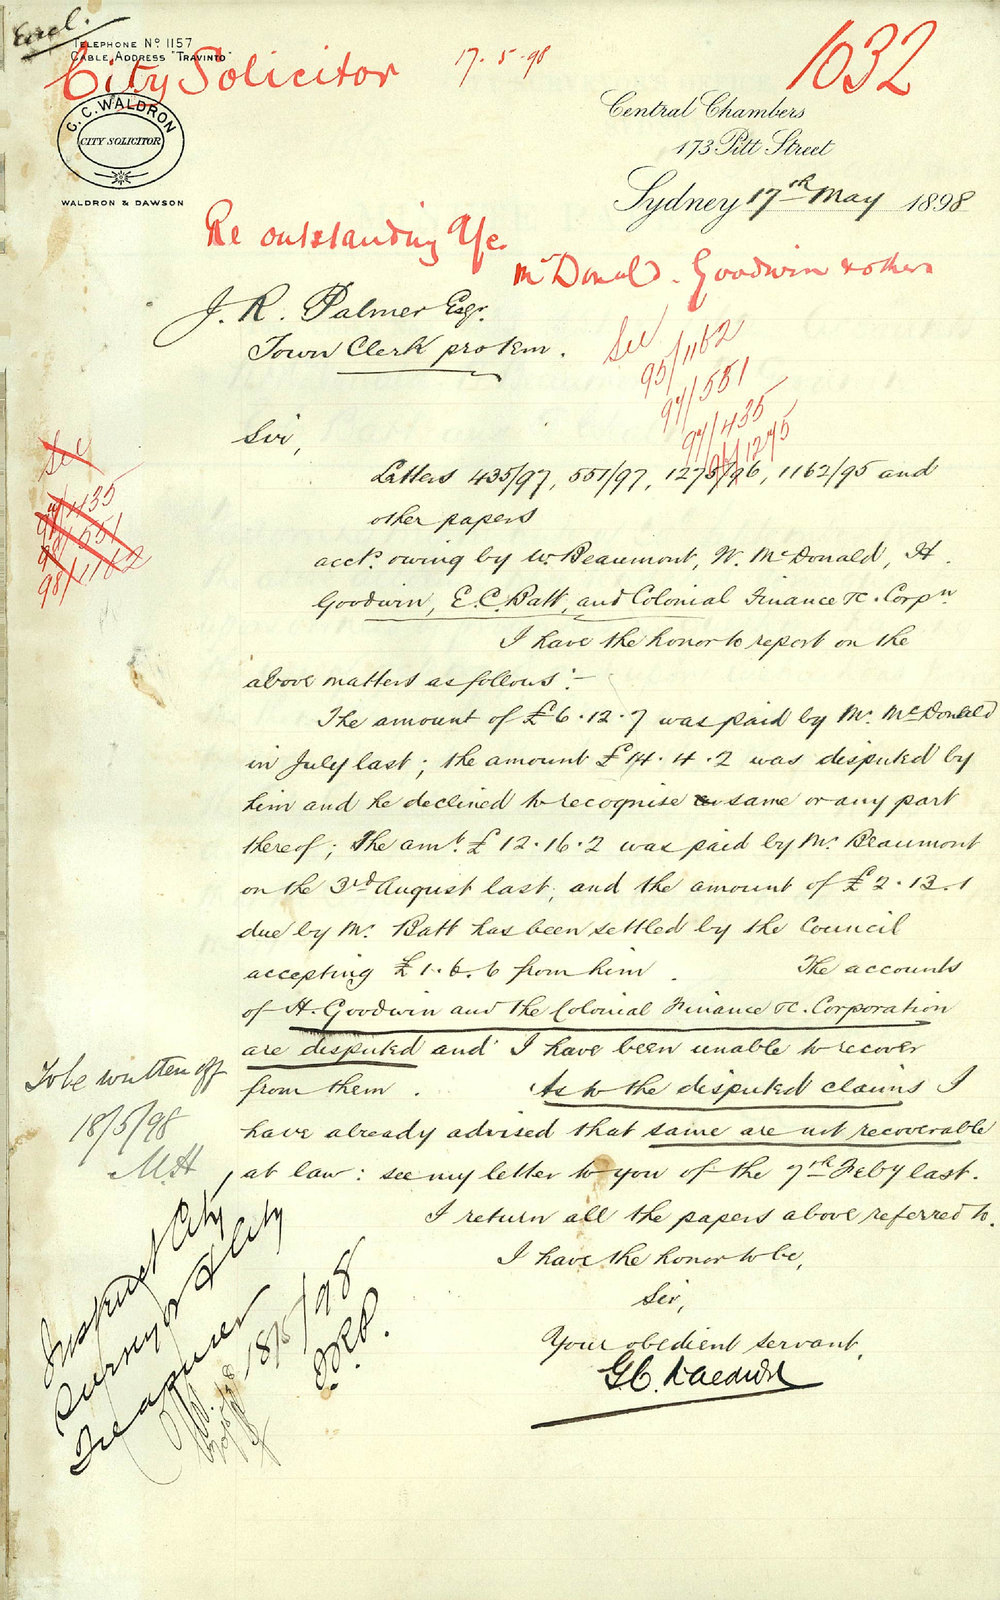 Encl.
TELEPHONE Nº 1157
CABLE ADDRESS "TRAVINTO"
City Solicitor
17.5.98
1632
G. C. WALDRON
CITY SOLICITOR
WALDRON & DAWSON
Central Chambers
173 Pitt Street
Sydney 17th May 1898
Re outstanding A/cs
McDonald. Goodwin & others
J. R. Palmer Esqr.
Town Clerk pro tem.
See
95/1162
97/551
97/435
96/1275
See
97/435
97/551
98/1162
Sir,
Letters 435/97, 551/97, 1275/96, 1162/95 and
other papers
accts. owing by W. Beaumont, W. McDonald, H.
Goodwin, E. C. Batt, and Colonial Finance &c. Corpn.
I have the honor to report on the
above matters as follows:-
The amount of £6.12.7 was paid by Mr. McDonald
in July last; the amount £14.4.2 was disputed by
him and he declined to recognise same or any part
thereof; The amt. £12.16.2 was paid by Mr. Beaumont
on the 3rd August last, and the amount of £2.13.1
due by Mr. Batt has been settled by the Council
accepting £1.6.6 from him. The accounts
of H. Goodwin and the Colonial Finance &c. Corporation
are disputed and I have been unable to recover
from them. As to the disputed claims I
have already advised that same are not recoverable
at law: see my letter to you of the 7th Feby last.
I return all the papers above referred to.
I have the honor to be,
Sir,
Your obedient servant,
G. C. Waldron
To be written off
18/5/98
M.H
Instruct City
Surveyor & City
Treasurer
18/5/98
J.R.P.